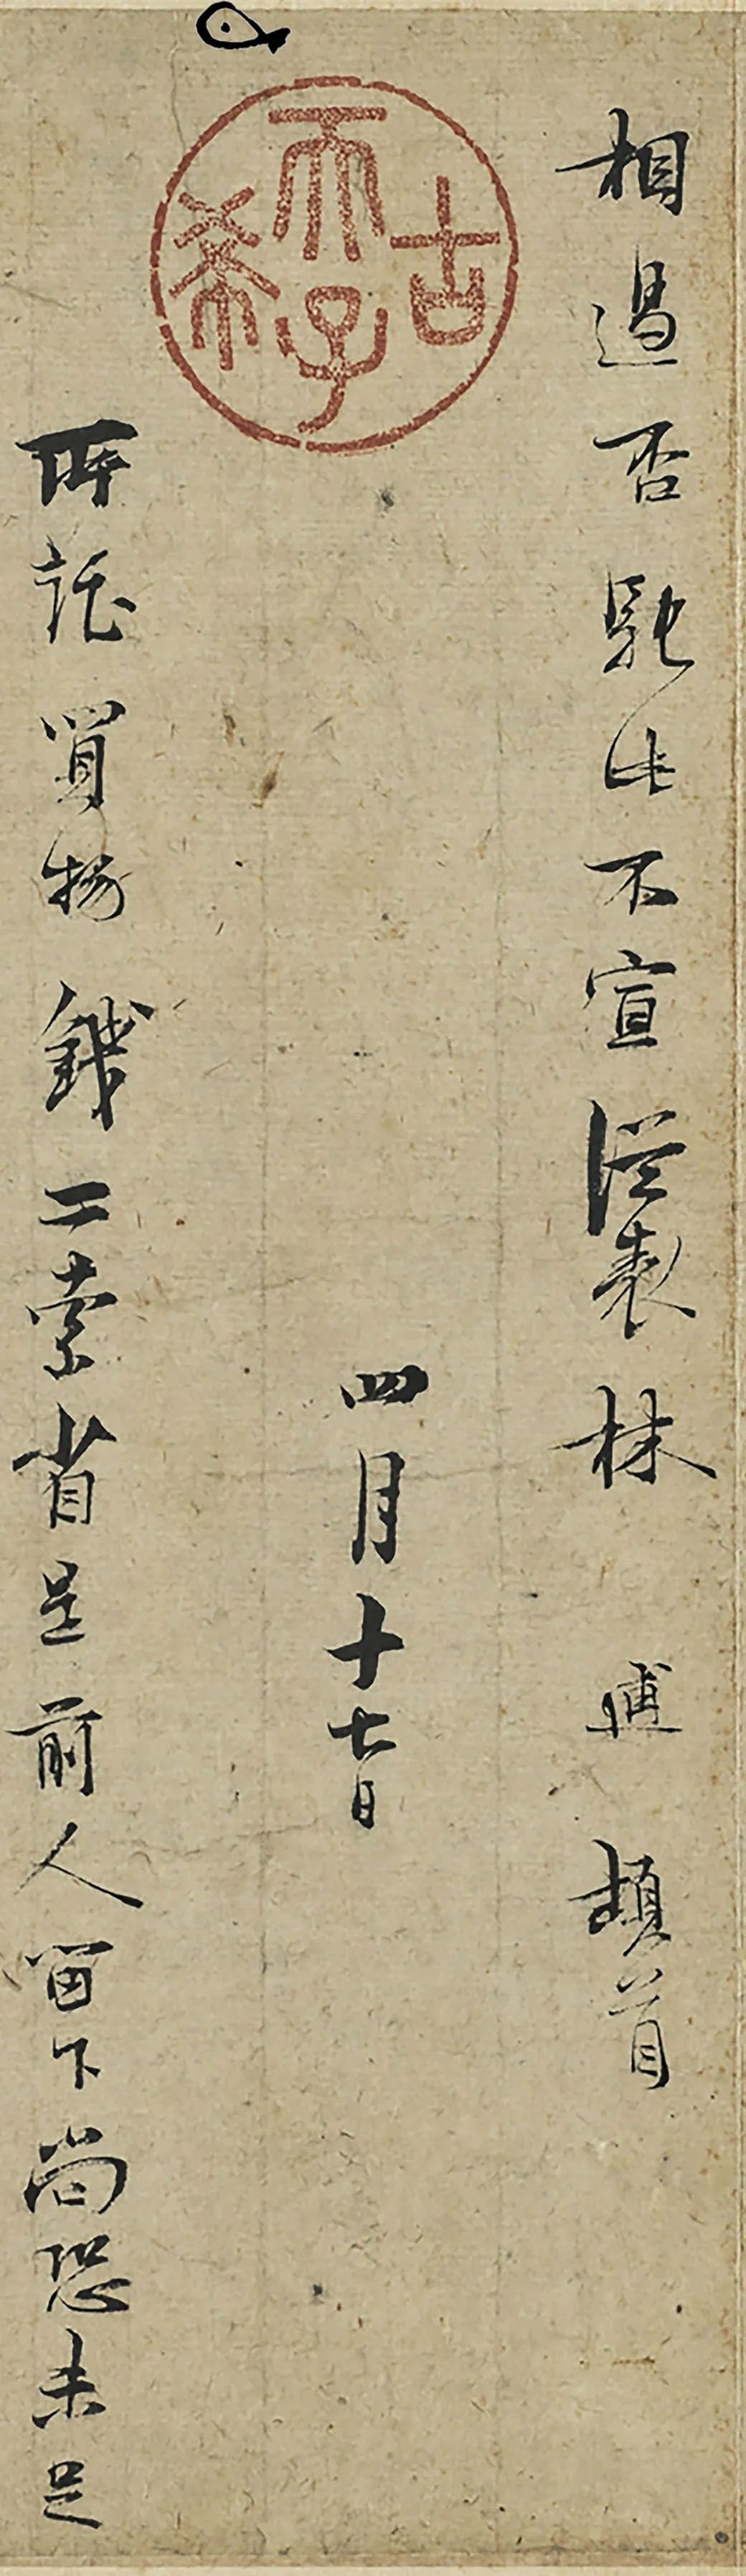 古希天子
相過否馳此不宣從表林 逋 頓首
四月十七日
所託買物錢二索省足前人留下尚恐未足